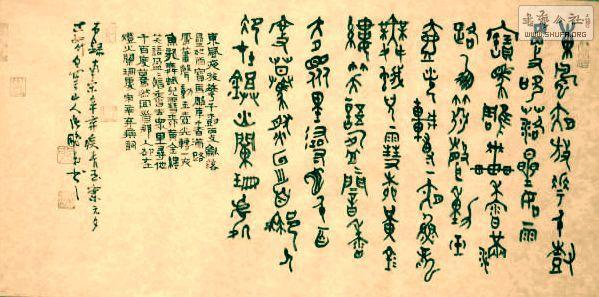 東風夜放花千樹
更吹落星如雨
寶馬雕車香滿
路鳳簫聲動玉
壺光轉一夜魚龍
舞蛾兒雪柳黃金
縷笑語盈盈暗香
去眾里尋他千百
度驀然回首那人
卻在燈火闌珊處
東風夜放花千樹更吹落
星如雨寶馬雕車香滿路
鳳簫聲動玉壺光轉一夜
魚龍舞蛾兒雪柳黃金縷
笑語盈盈暗香去眾里尋他
千百度驀然回首那人卻在
燈火闌珊處宋辛棄疾詞
錄南宋辛棄疾青玉案元夕
WWW.SHUFA.ORG